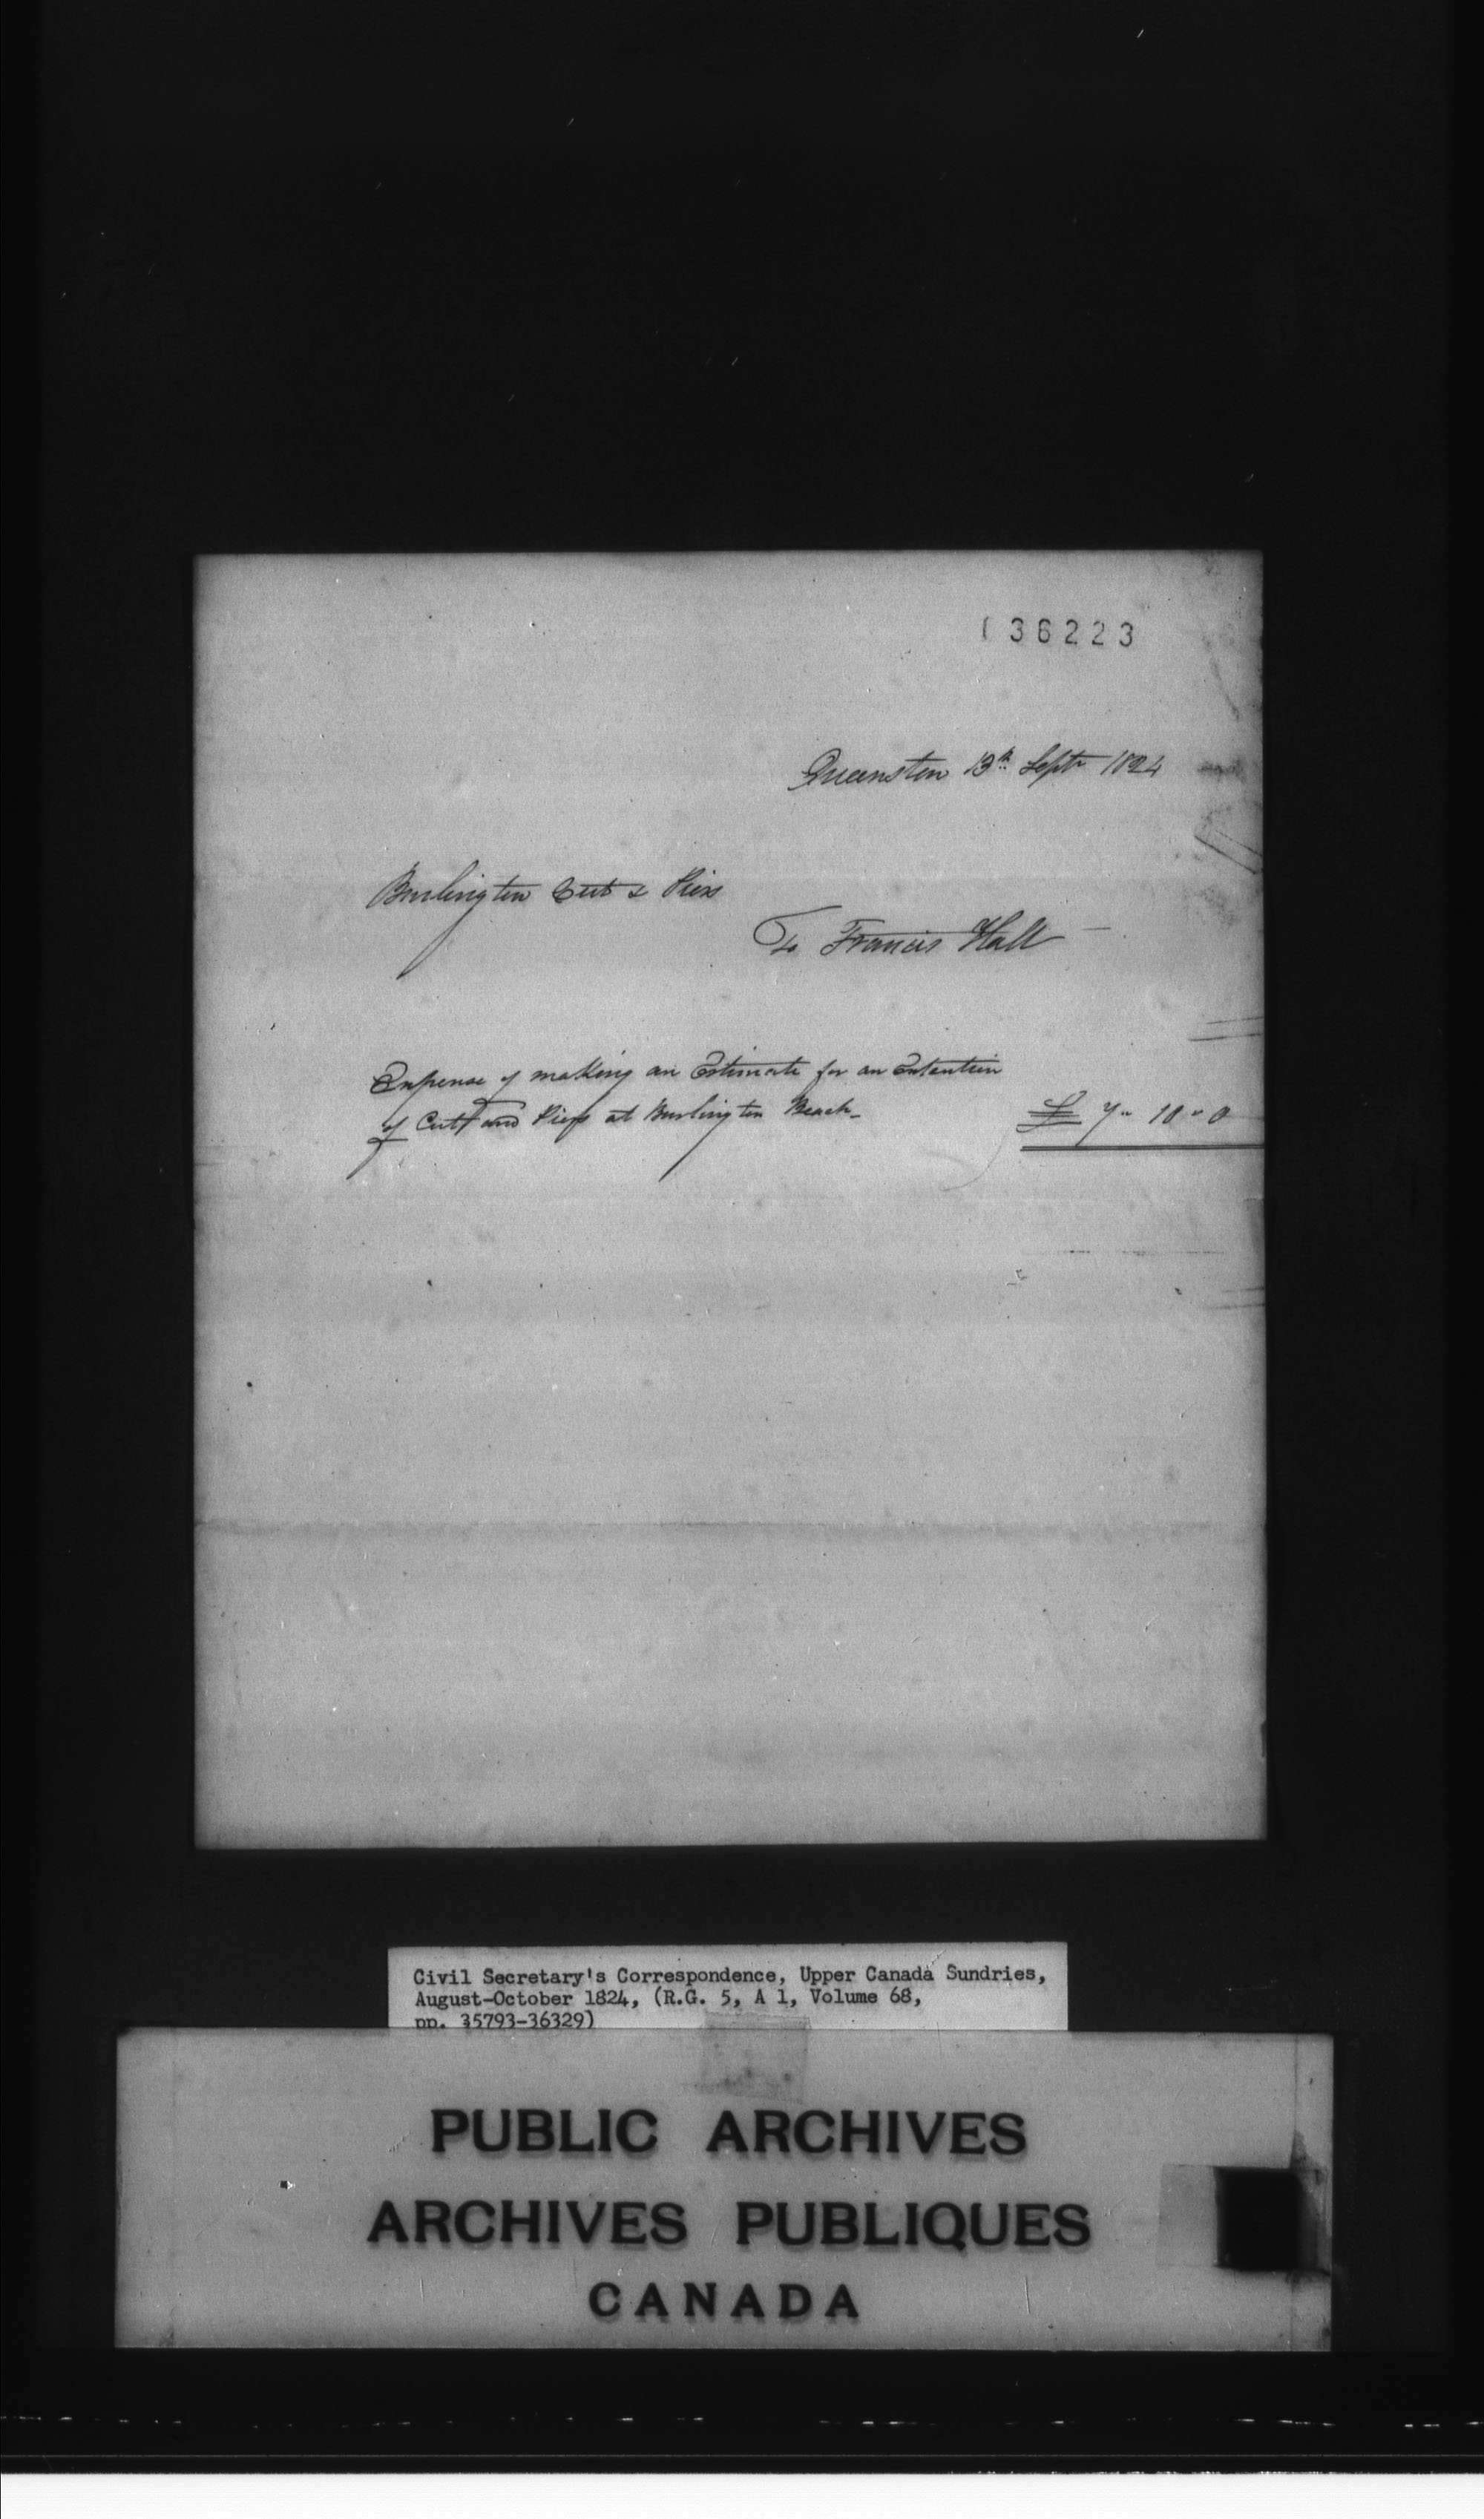 36223
Queenston 13th Septr 1824
Burlington Cut & Piers
To Francis Hall
Expense of making an Estimate for an Extention
of Cutt and Piers at Burlington Beach
£ 7 " 10 " 0
Civil Secretary's Correspondence, Upper Canada Sundries,
August-October 1824, (R.G. 5, A 1, Volume 68,
pp. 35793-36329)
PUBLIC ARCHIVES
ARCHIVES PUBLIQUES
CANADA